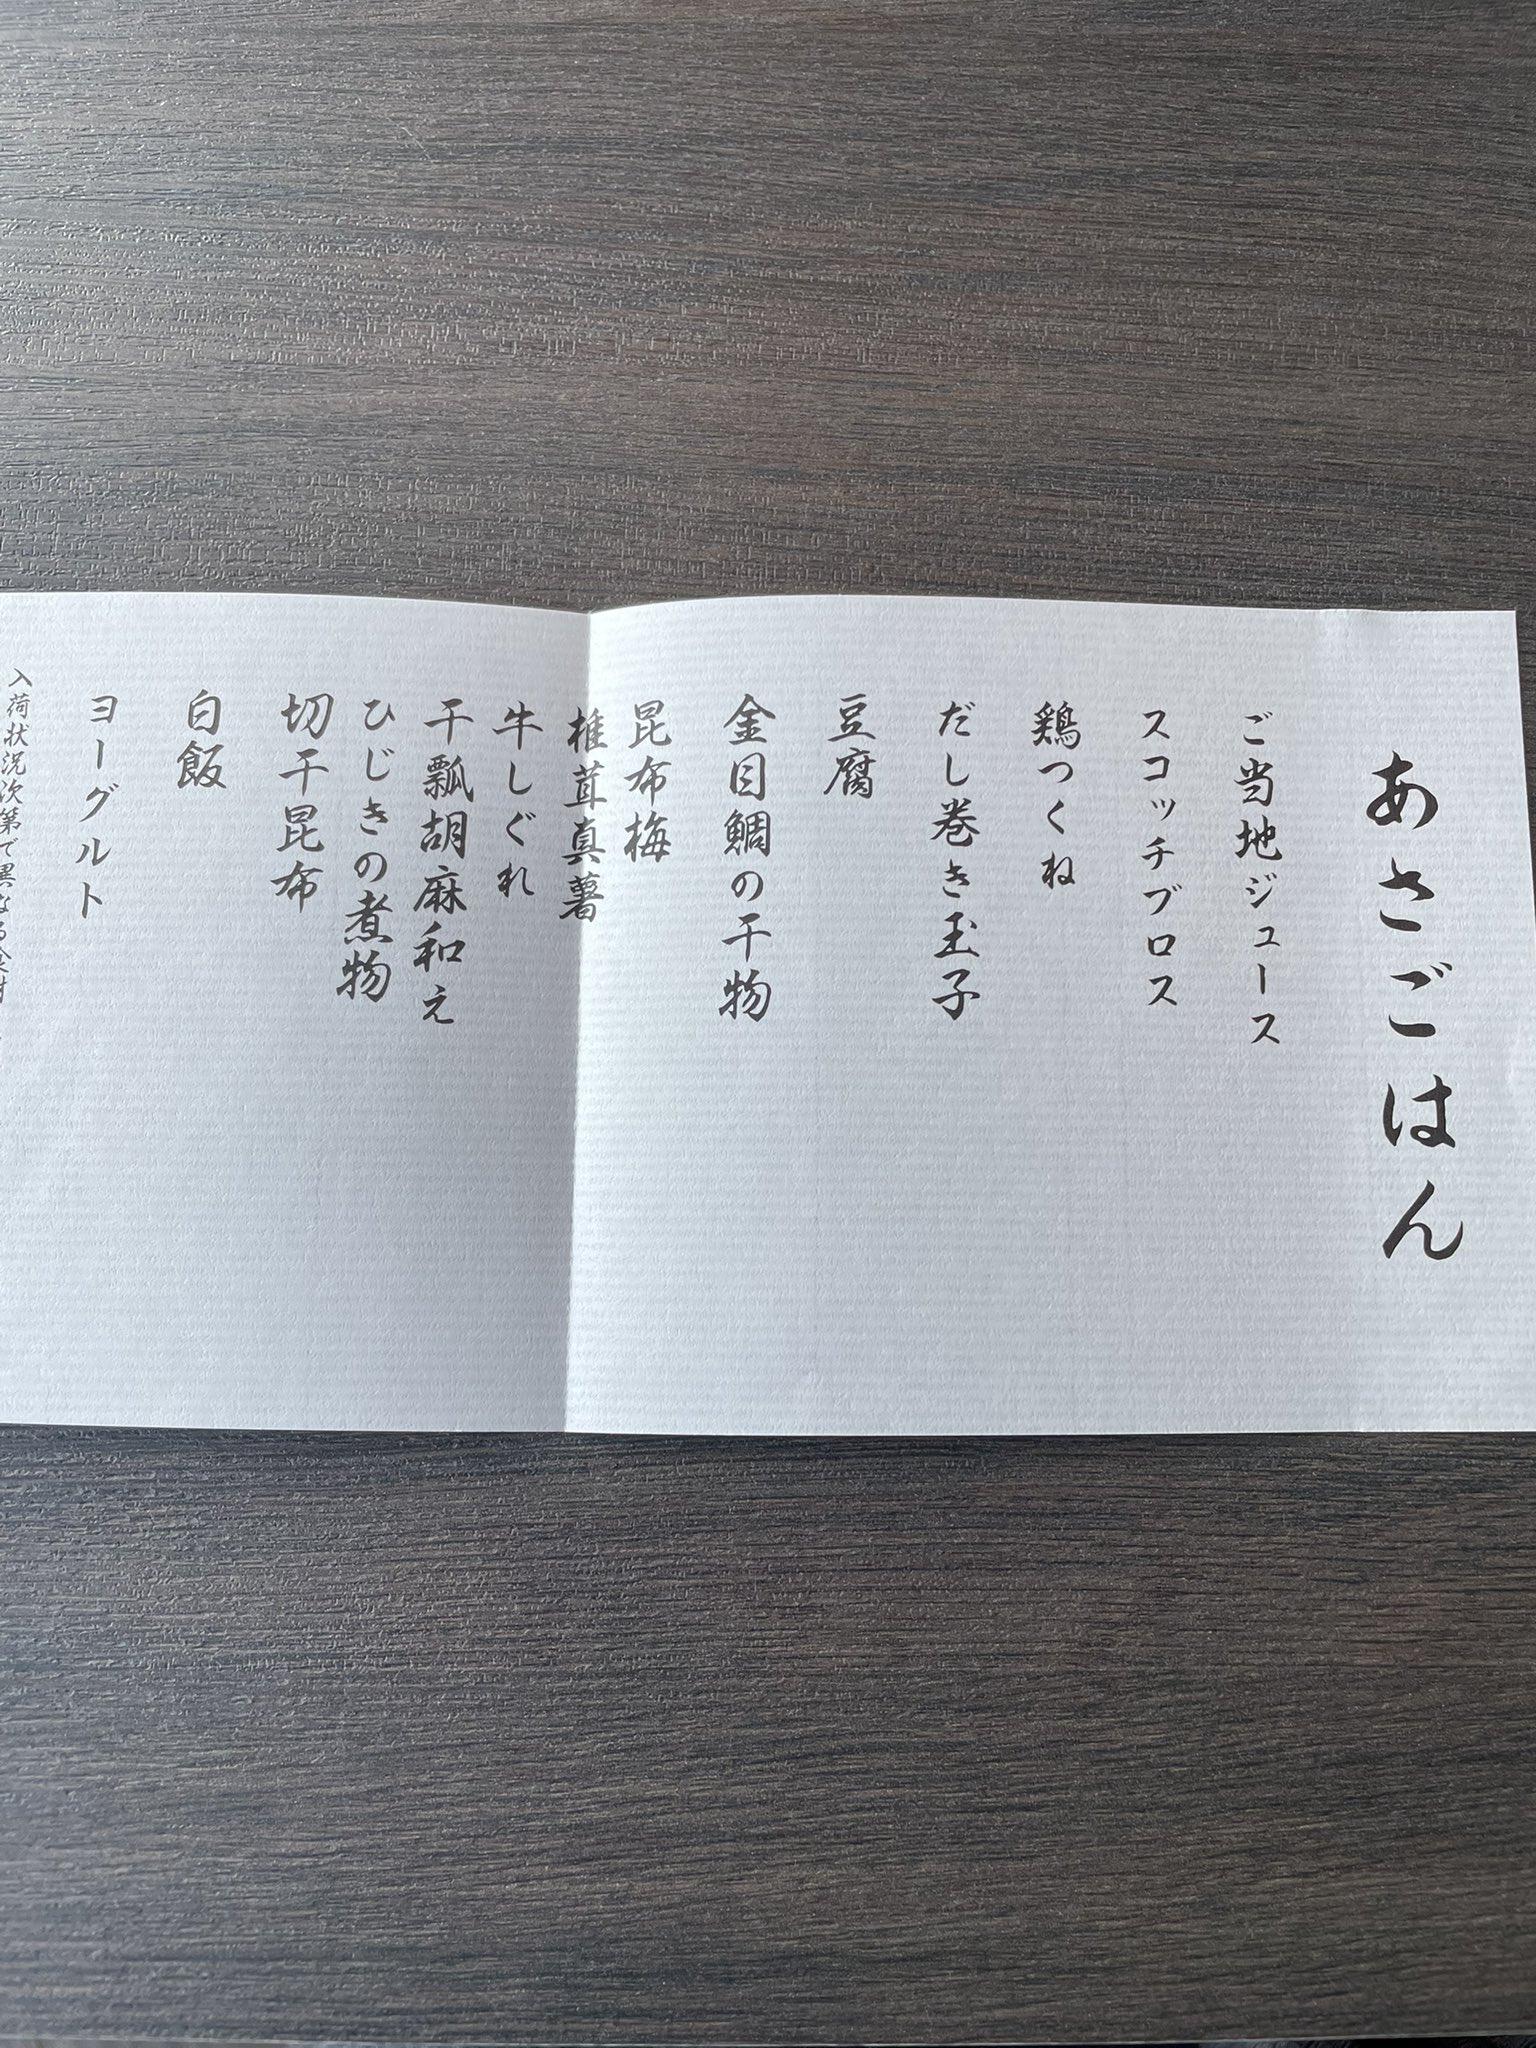 あさごはん
ご当地ジュース
スコッチブロス
鶏つくね
だし巻き玉子
豆腐
金目鯛の干物
昆布梅
椎茸真薯
牛しぐれ
干瓢胡麻和え
ひじきの煮物
切干昆布
白飯
ヨーグルト
入荷状況次第で異なる